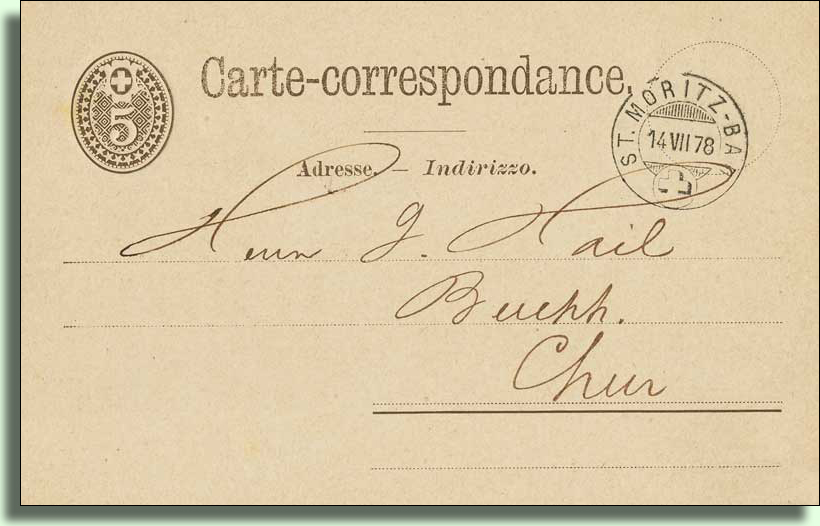 Carte-correspondance.
5
ST. MORITZ-BAD
14 VII 78
Adresse. — Indirizzo.
Herrn J. Hail
Buchh.
Chur